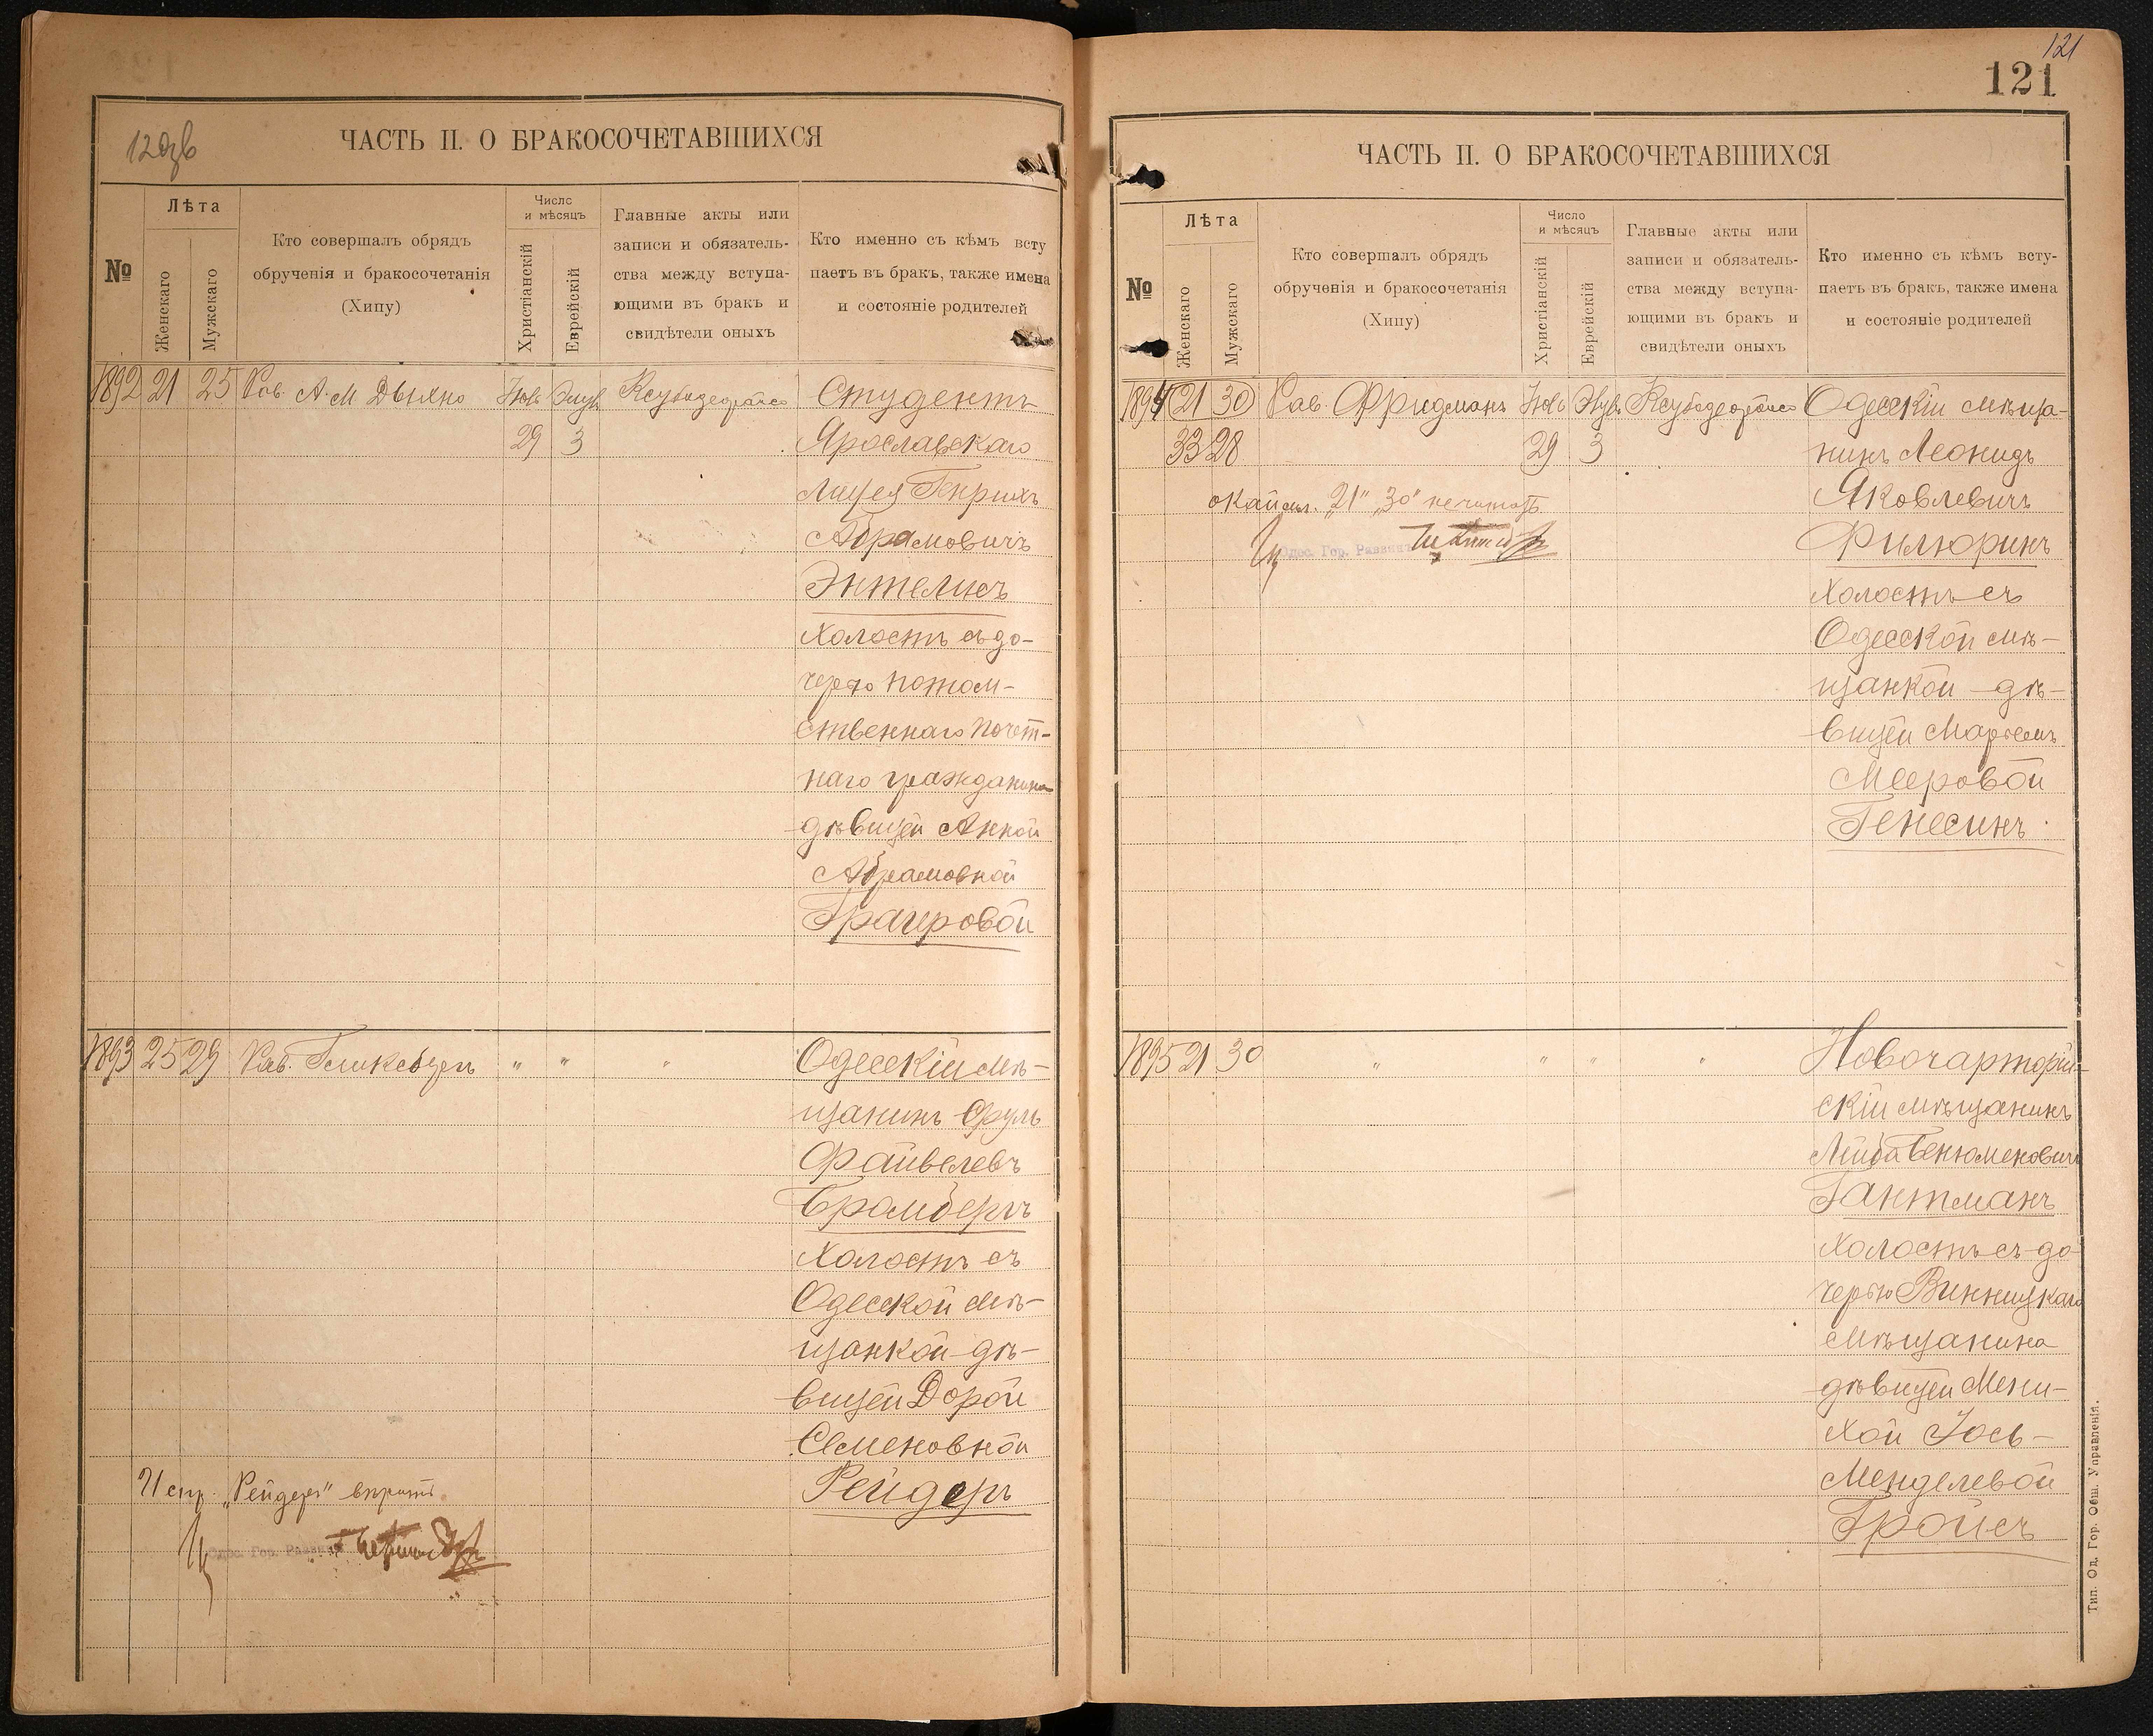 120зв
ЧАСТЬ II. О БРАКОСОЧЕТАВШИХСЯ
№
Лѣта
Женскаго
Мужскаго
Кто совершалъ обрядъ
обрученія и бракосочетанія
(Хипу)
Число
и мѣсяцъ
Христіанскій
Еврейскій
Главные акты или
записи и обязатель-
ства между вступа-
ющими въ бракъ и
свидѣтели оныхъ
Кто именно съ кѣмъ всту
паетъ въ бракъ, также имена
и состояніе родителей
1892 21 25 Рав. А. М Дыхно Студентъ
29 3 Ярославскаго
Лицея Генрихъ
Абрамовичъ
Энтелисъ
холостъ съ до-
черью потом-
ственнаго почет-
наго гражданина
дѣвицей Анной
Абрамовной
Трагеровой
1893 25 29 Рав. " " " Одесскій мѣ-
щанинъ Сруль
Файвелевъ
Бромбергъ
холостъ съ
Одесской мѣ-
щанкой-дѣ-
вицей Дорой
Семеновной
Рейдеръ
Испр. „Рейдеръ" вѣрить
Одес. Гор. Раввинъ
121
121
ЧАСТЬ II. О БРАКОСОЧЕТАВШИХСЯ
№
Лѣта
Женскаго
Мужскаго
Кто совершалъ обрядъ
обрученія и бракосочетанія
(Хипу)
Число
и мѣсяцъ
Христіанскій
Еврейскій
Главные акты или
записи и обязатель-
ства между вступа-
ющими въ бракъ и
свидѣтели оныхъ
Кто именно съ кѣмъ всту-
паетъ въ бракъ, также имена
и состояніе родителей
1894 21 30 Рав. Фридманъ Одесскій мѣща-
33 28 29 3 нинъ Леонидъ
окайм. „21" „30" не читать Яковлевичъ
Одес. Гор. Раввинъ Филюринъ
холостъ съ
Одесской мѣ-
щанкой-дѣ-
вицей
Мееровой
Генесинъ
1895 21 30 " " " " Новочарторій-
скій мѣщанинъ
Лейба Бенюменовичъ
Гантманъ
холостъ съ до
черью Винницкаго
мѣщанина
дѣвицей Мени-
хой Іось-
Менделевой
Тройсъ
Тип. Од. Гор. Общ. Управленія.